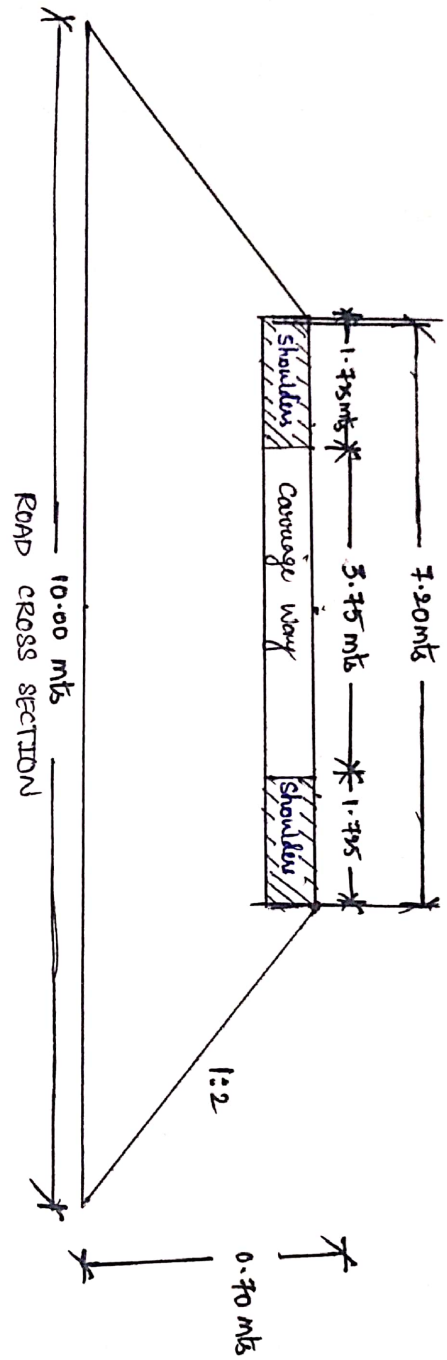 7.20mts
1.725mts
3.75 mts
1.725
Shoulders
Carriage Way
Shoulders
1:2
0.70 mts
10.00 mts
ROAD CROSS SECTION